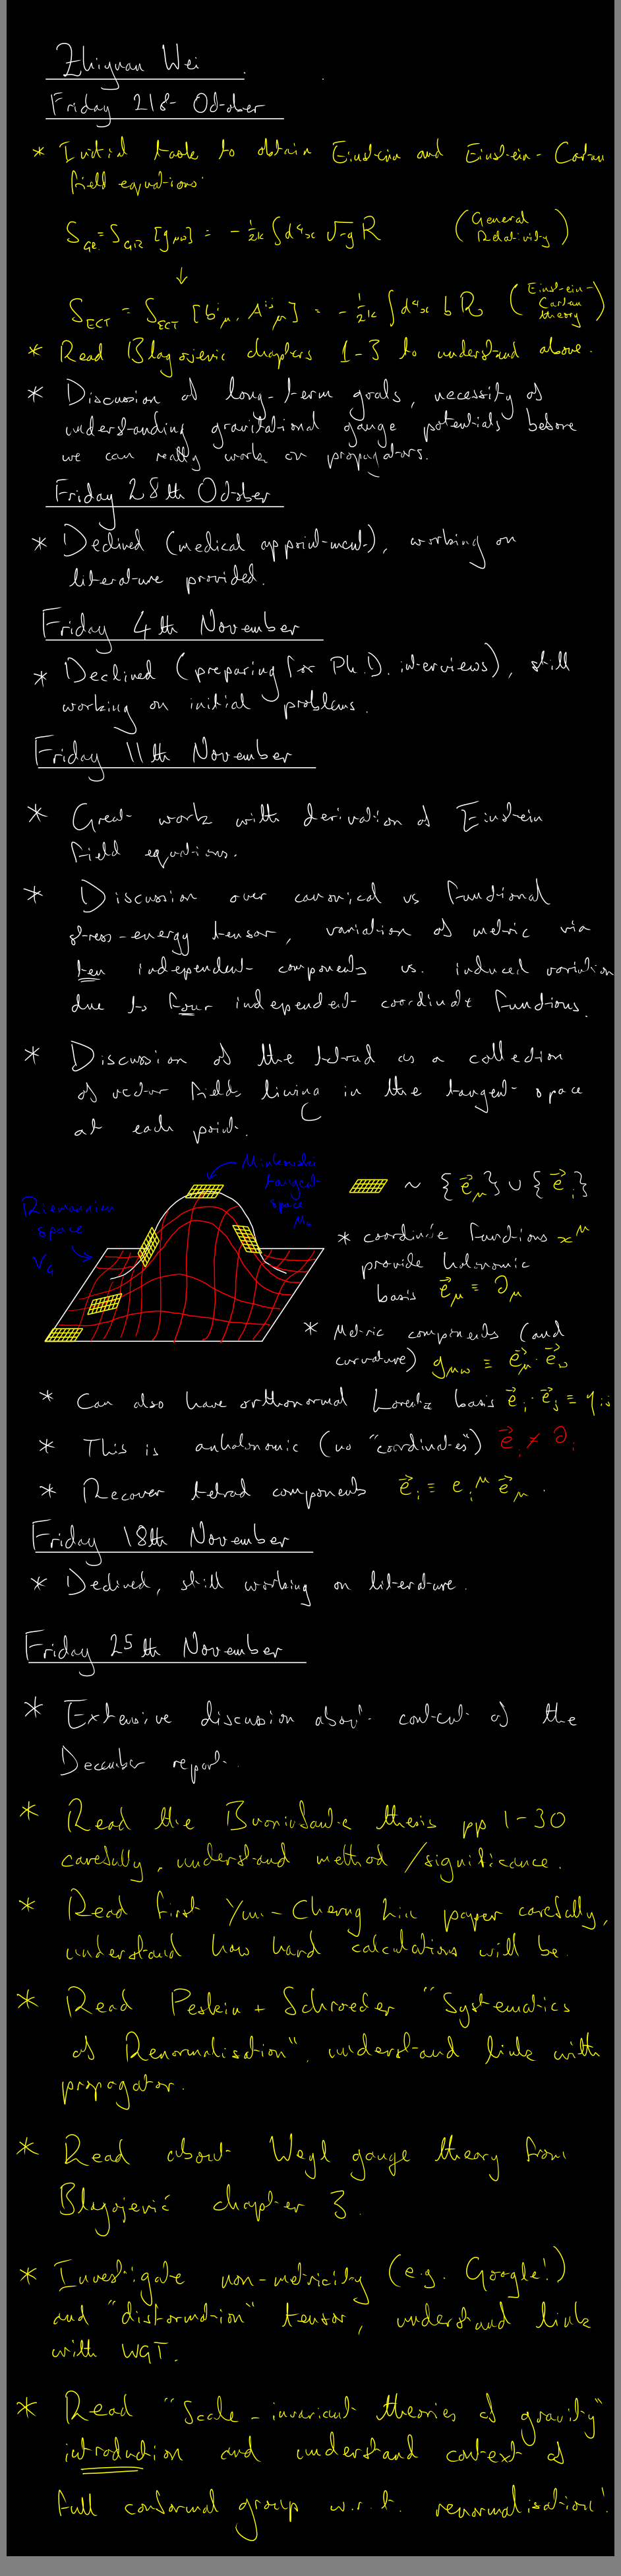 Zhiyuan Wei
Friday 21st October
* Initial task to obtain Einstein and Einstein-Cartan
field equations:
S_GR = S_GR [g_μν] = - 1/2κ ∫d⁴x √-g R (General Relativity)
↓
S_ECT = S_ECT [b^i_μ, A^ij_μ] = - 1/2κ ∫d⁴x b R (Einstein-Cartan theory)
* Read Blagojevic chapters 1-3 to understand above.
* Discussion of long-term goals, necessity of
understanding gravitational gauge potentials before
we can really work on propagators.
Friday 28th October
* Declined (medical appointment), working on
literature provided.
Friday 4th November
* Declined (preparing for Ph.D. interviews), still
working on initial problems.
Friday 11th November
* Great work with derivation of Einstein
field equations.
* Discussion over canonical vs functional
stress-energy tensor, variation of metric via
ten independent components vs. induced variation
due to four independent coordinate functions.
* Discussion of the tetrad as a collection
of vector fields living in the tangent space
at each point.
Minkowski
tangent
space
M₄
Riemannian
space
V₄
~ {e⃗_μ} ∪ {e⃗_i}
* coordinate functions x^μ
provide holonomic
basis e⃗_μ ≡ ∂_μ
* Metric components (and
curvature) g_μν ≡ e⃗_μ · e⃗_ν
* Can also have orthonormal Lorentz basis e⃗_i · e⃗_j ≡ η_ij
* This is anholonomic (no "coordinates") e⃗_i ≠ ∂_i
* Recover tetrad components e⃗_i ≡ e_i^μ e⃗_μ.
Friday 18th November
* Declined, still working on literature.
Friday 25th November
* Extensive discussion about content of the
December report.
* Read the Buoninfante thesis pp 1-30
carefully, understand method/significance.
* Read first Yun-Cherng Lin paper carefully,
understand how hard calculations will be.
* Read Peskin + Schroeder "Systematics
of Renormalisation", understand link with
propagator.
* Read about Weyl gauge theory from
Blagojević chapter 3.
* Investigate non-metricity (e.g. Google!)
and "disformation" tensor, understand link
with WGT.
* Read "Scale-invariant theories of gravity"
introduction and understand context of
full conformal group w.r.t. renormalisation!